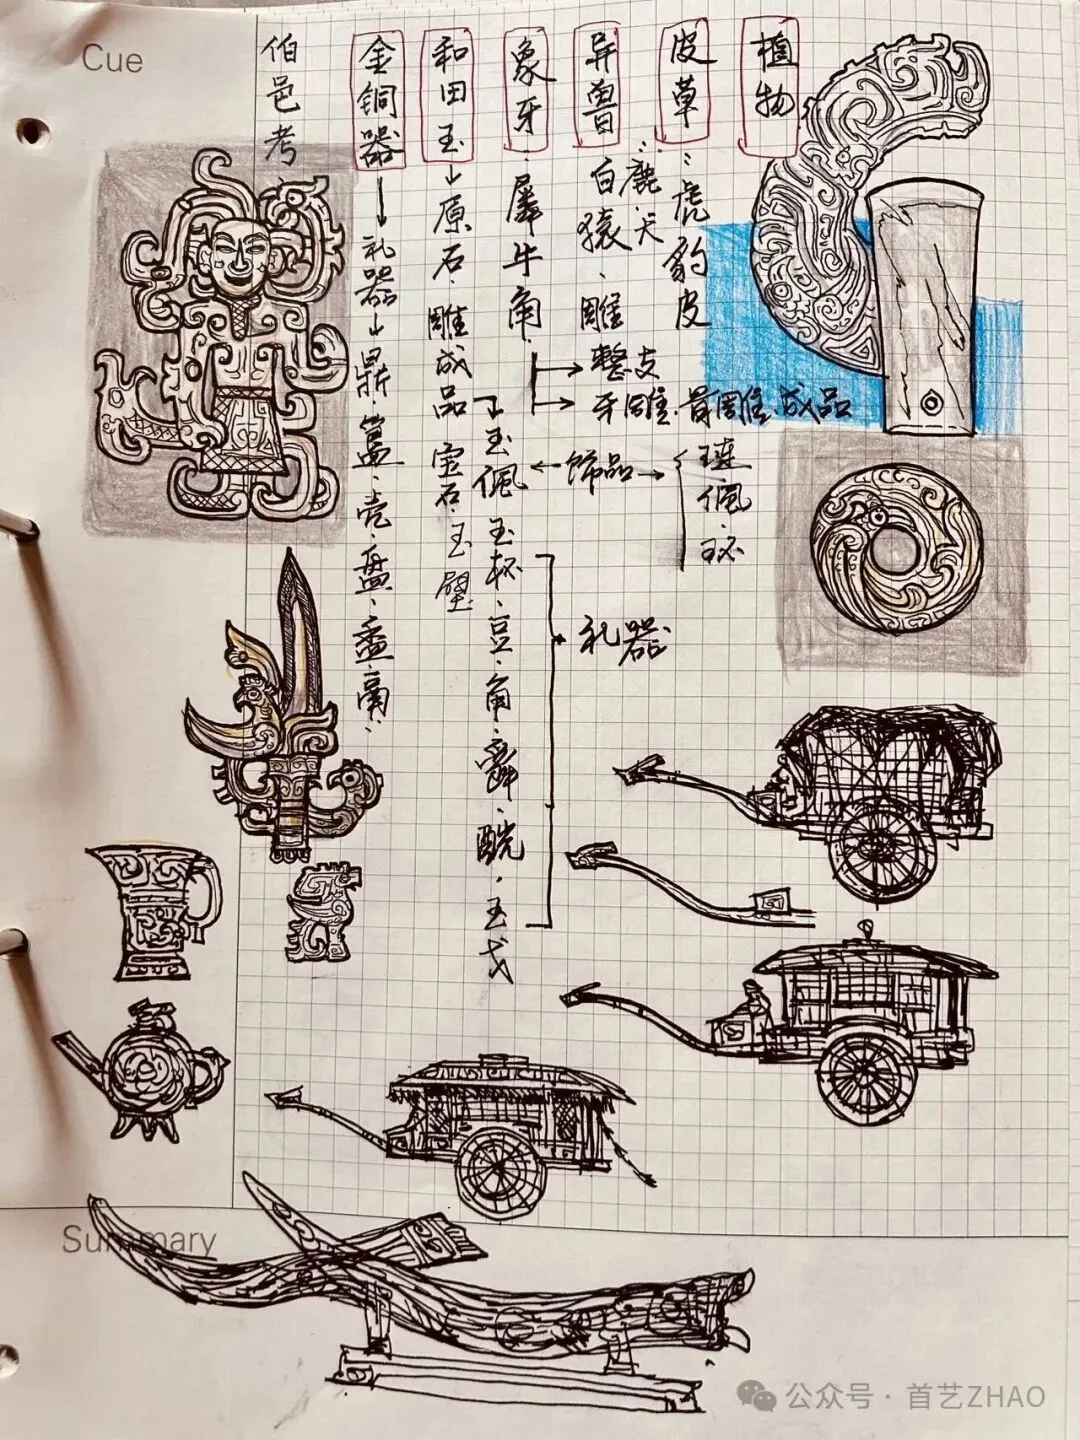 Cue
伯邑考
金铜器→礼器→鼎、簋、壳、盘、盉、鬲、
和田玉→原石、雕成品、宝石、玉璧
玉佩
玉杯、豆、角、爵、觥、玉戈
礼器
象牙、犀牛角、
异兽
白猿、雕
鹿、犬
皮草:虎豹皮
植物
整支
牙雕、骨雕、成品
饰品
佩
Summary
公众号·首艺ZHAO